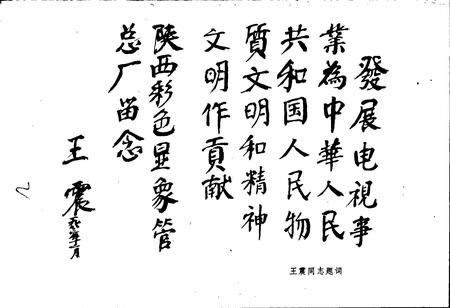 發展电視事
業為中華人民
共和国人民物
質文明和精神
文明作貢献
陕西彩色显象管
总厂留念
王震
王震同志题词